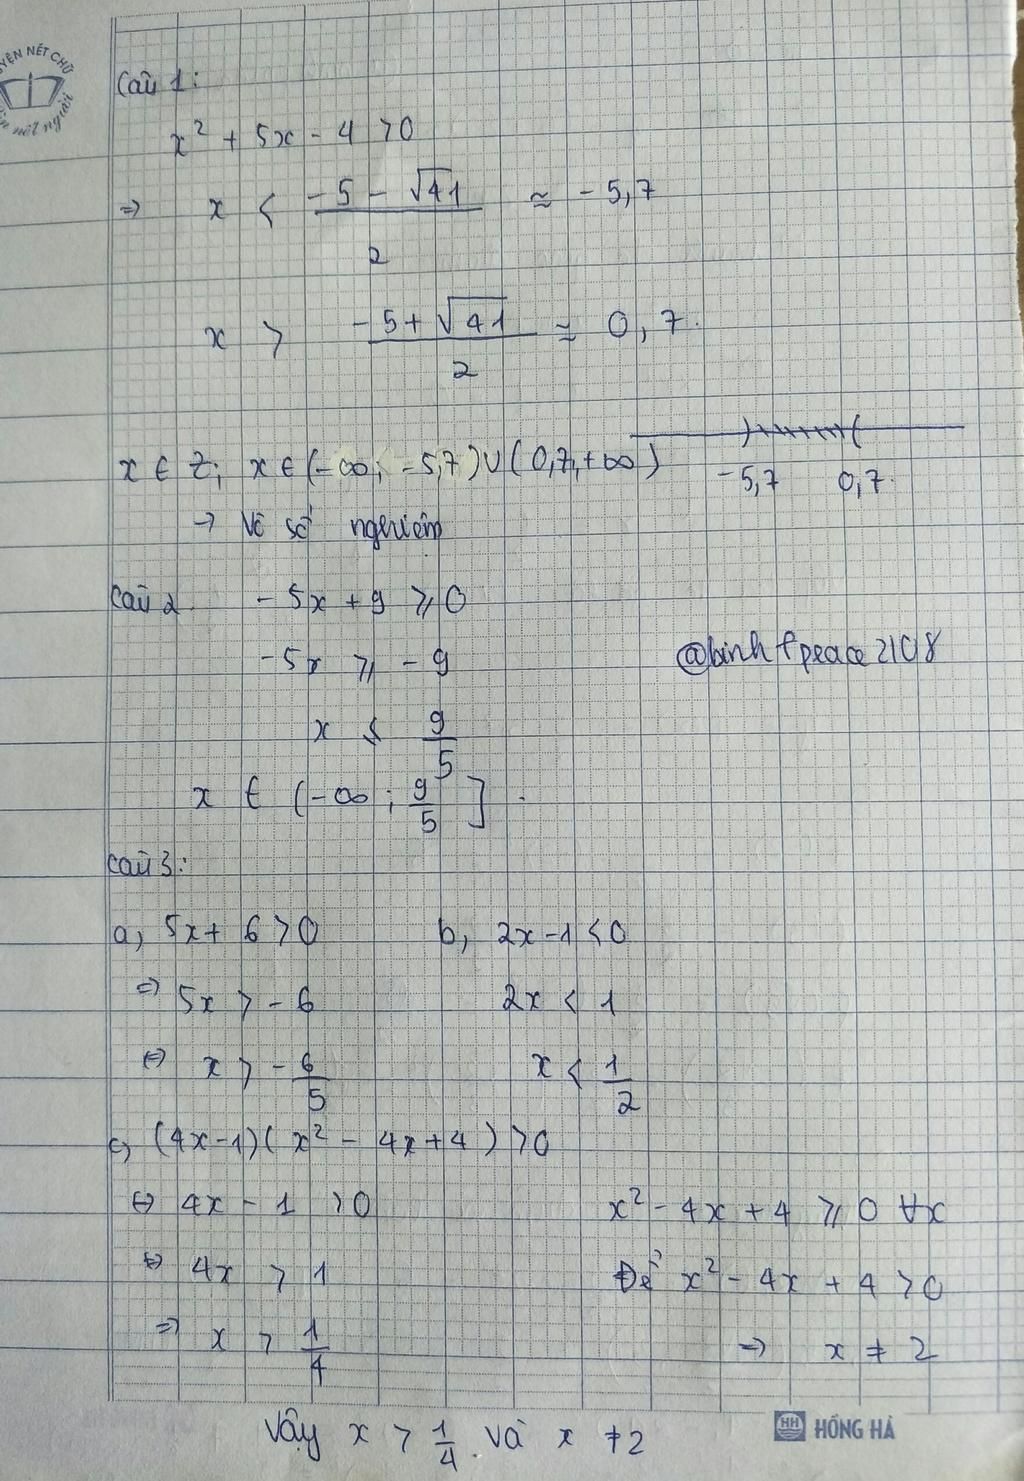 YỆN NÉT CHỮ
èn nết người
Câu 1:
x² + 5x - 4 > 0
=> x < (-5 - √41)/2 ≈ -5,7
x > (-5 + √41)/2 ≈ 0,7.
x ∈ Z; x ∈ (-∞; -5,7) ∪ (0,7; +∞)
-5,7 0,7.
→ Vô số nghiệm
Câu 2. -5x + 9 ⩾ 0
-5x ⩾ -9
@binhfpeace2108
x ≤ 9/5
x ∈ (-∞; 9/5].
Câu 3:
a, 5x + 6 > 0 b, 2x - 1 < 0
=> 5x > -6 2x < 1
<=> x > -6/5 x < 1/2
c, (4x - 1)(x² - 4x + 4) > 0
<=> 4x - 1 > 0 x² - 4x + 4 ⩾ 0 ∀x
<=> 4x > 1 Để x² - 4x + 4 > 0
=> x > 1/4 => x ≠ 2
Vậy x > 1/4 và x ≠ 2
HH HỒNG HÀ